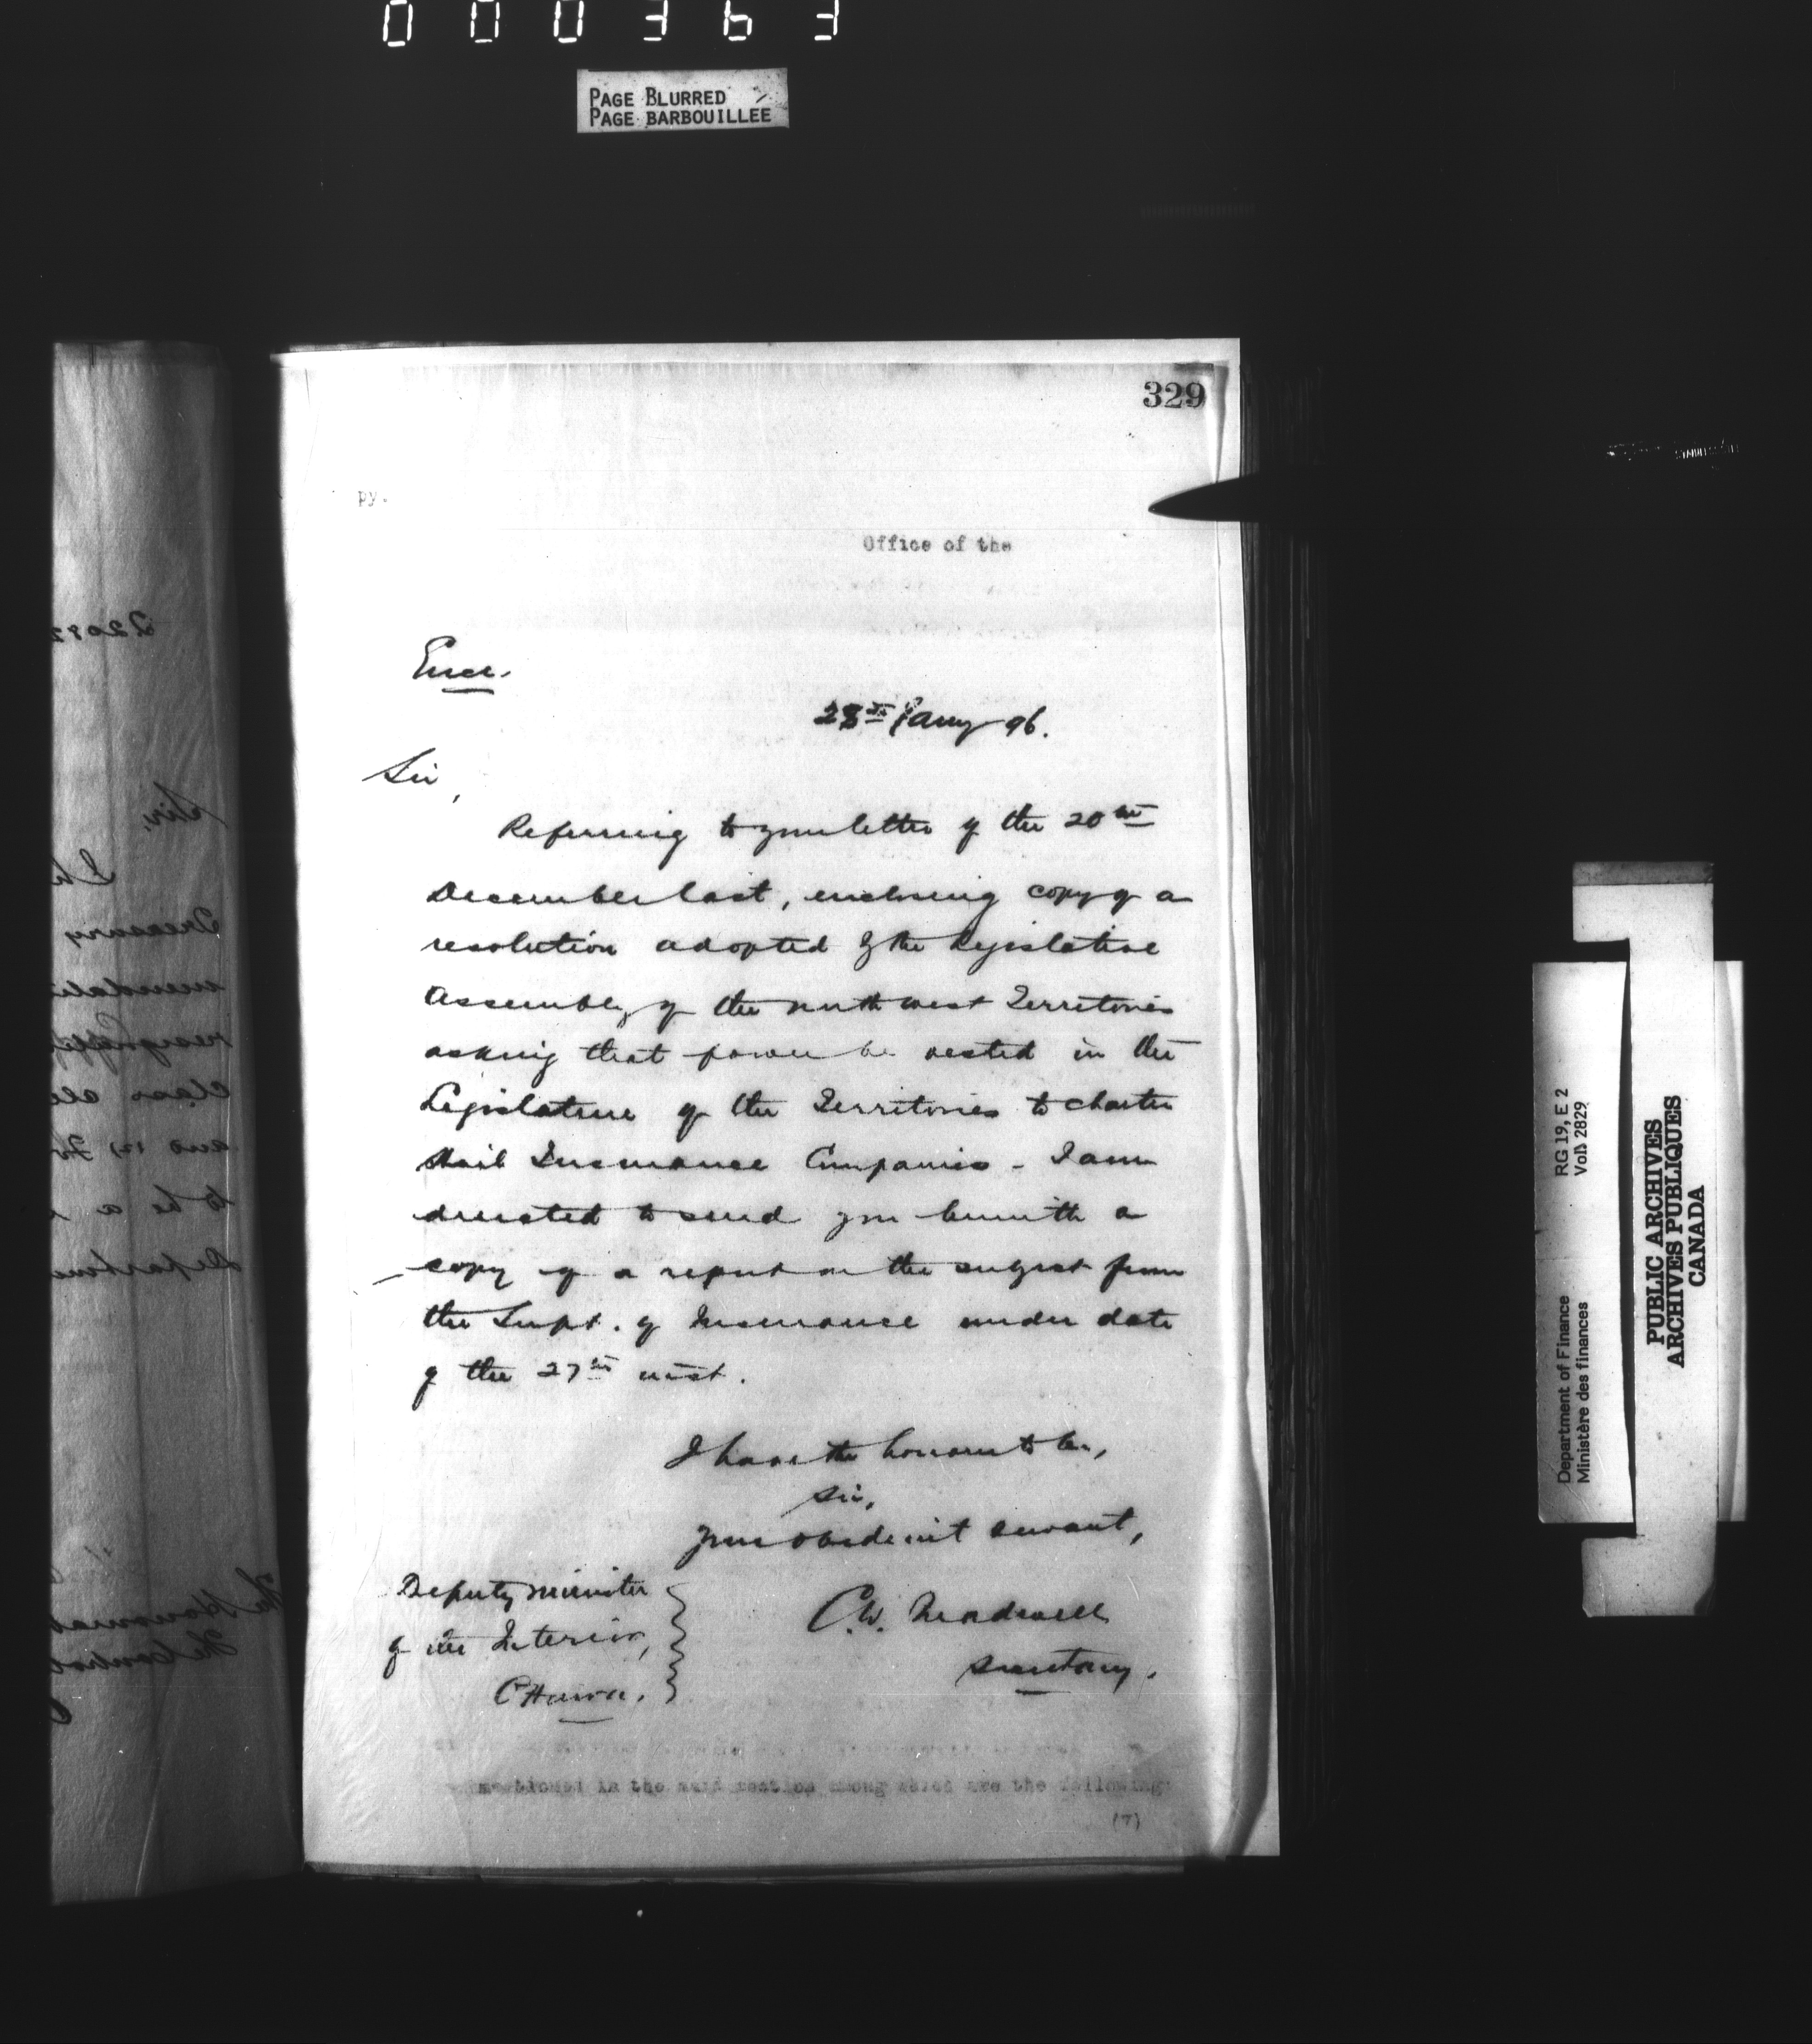 000363
PAGE BLURRED
PAGE BARBOUILLÉE
329
py.
Office of the
Encl.
28th Jany 96.
Sir,
Referring to your letter of the 20th
December last, enclosing copy of a
resolution adopted by the Legislative
Assembly of the North West Territories
asking that power be vested in the
Legislature of the Territories to charter
Hail Insurance Companies - I am
directed to send you herewith a
copy of a report on the subject from
the Supt. of Insurance under date
of the 27th inst.
I have the honour to be,
Sir,
Your obedient servant,
C.W. Treadwell
Secretary.
Deputy Minister
of the Interior,
Ottawa.
mentioned in the said section among which are the following:
(7)
Department of Finance
Ministère des finances
RG 19, E 2
Vol. 2829
PUBLIC ARCHIVES
ARCHIVES PUBLIQUES
CANADA